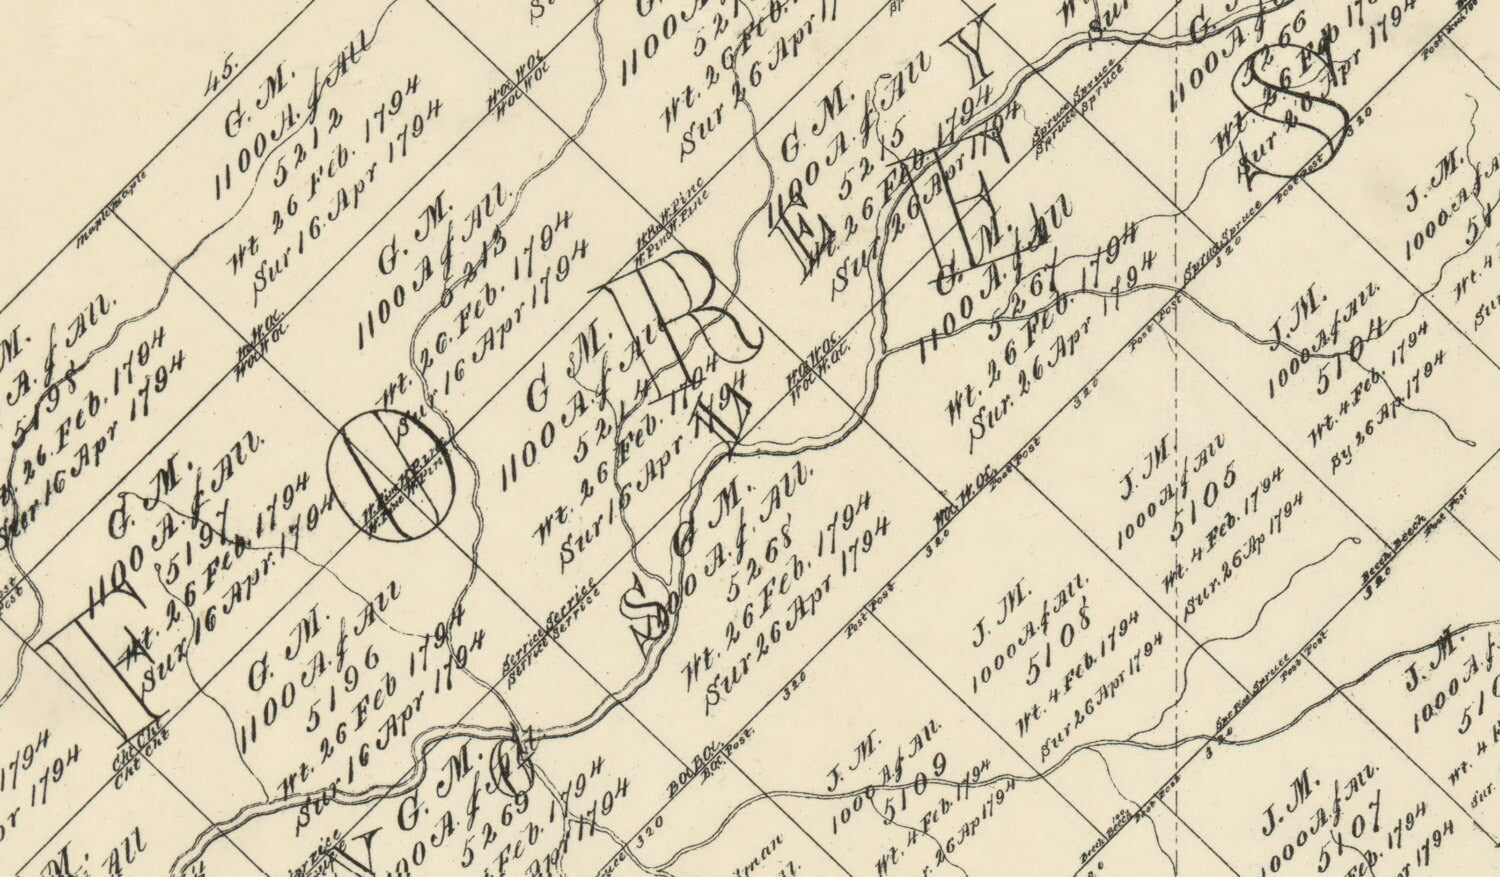 45.
G. M.
1100 A. f All
5212
Wt 26 Feb. 1794
Sur 16. Apr 1794
G. M.
1100 A f All.
5213
Wt. 26 Feb. 1794
Sur 16 Apr 1794
1100 A
Wt. 26 Feb.
Sur 26 Apr 17
G. M.
1100 A. f All
5215
Wt. 26 Feb. 1794
Sur. 26 Apr 1794
1100 A. f
5266
Wt. 26 Feb 179
Sur 26 Apr 1794
M.
A. f All.
5198
26 Feb. 1794
Sur 16 Apr 1794
G. M.
1100 A. f All
5214
Wt 26 Feb. 1794
Sur 16 Apr 1794
G. M.
1100 A. f All
5267
Wt. 26 Feb. 1794
Sur. 26 Apr 1794
J. M.
1000 A. f A
Wt. 4
J. M.
1000 A f All.
5104
Wt. 4 Feb. 1794
By 26 Ap 1794
G. M.
1100 A. f All.
5197
Wt. 26 Feb. 1794
Sur 16 Apr. 1794
G. M.
1100 A. f All.
5268
Wt. 26 Feb. 1794
Sur 26 Apr 1794
J. M.
1000 A. f All
5105
Wt. 4 Feb. 1794
Sur. 26 Ap 1794
G. M.
1100 A. f All
5196
Wt. 26 Feb 1794
Sur 16 Apr 1794
J. M.
1000 A. f All.
5108
Wt. 4 Feb. 1794
Sur 26 Apr 1794
G. M.
1100 A. f All
5269
Feb. 1794
Apr 1794
J. M.
1000 A f All.
5109
Wt. 4 Feb. 1794
26 Ap 1794
J. M.
1000 A. f
510
Wt. 4
Sur.
J. M.
1000 A. f All.
5107
Feb. 1794
Apr 1794
1794
1794
M.
All
F O R E S
R E Y
S M
Maple Maple
W. Oc W. Oc
W. Oc W. Oc
W. Pine
W. Pine W. Pine
Spruce Spruce
Spruce Spruce
Post Post
320
Spruce Spruce
320
Post Post
320
W. Oc W. Oc
W. Oc W. Oc.
W. Oc W. Oc.
W. Oc W. Oc.
W. Pine W. Pine
W. Pine W. Pine
W. Oc. W. Oc.
Post Post
320
Beech Beech
Post Post
320
Service Service
Service Service
Post Post
320
Spruce
Post Post
320
Cht Cht
Cht Cht
B. Oc B. Oc.
B. Oc. Post.
320
Beech
Post Post
Service